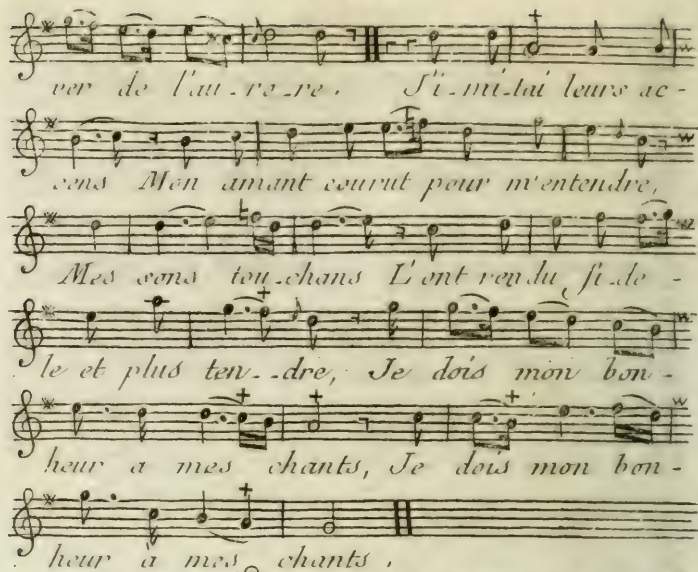 ver de l'au_ro_re. J'i_mi_tai leurs ac-
cens Mon amant courut pour m'entendre,
Mes sons tou_chans L'ont rendu fi_de-
le et plus ten__dre, Je dois mon bon-
heur a mes chants, Je dois mon bon-
heur à mes chants.